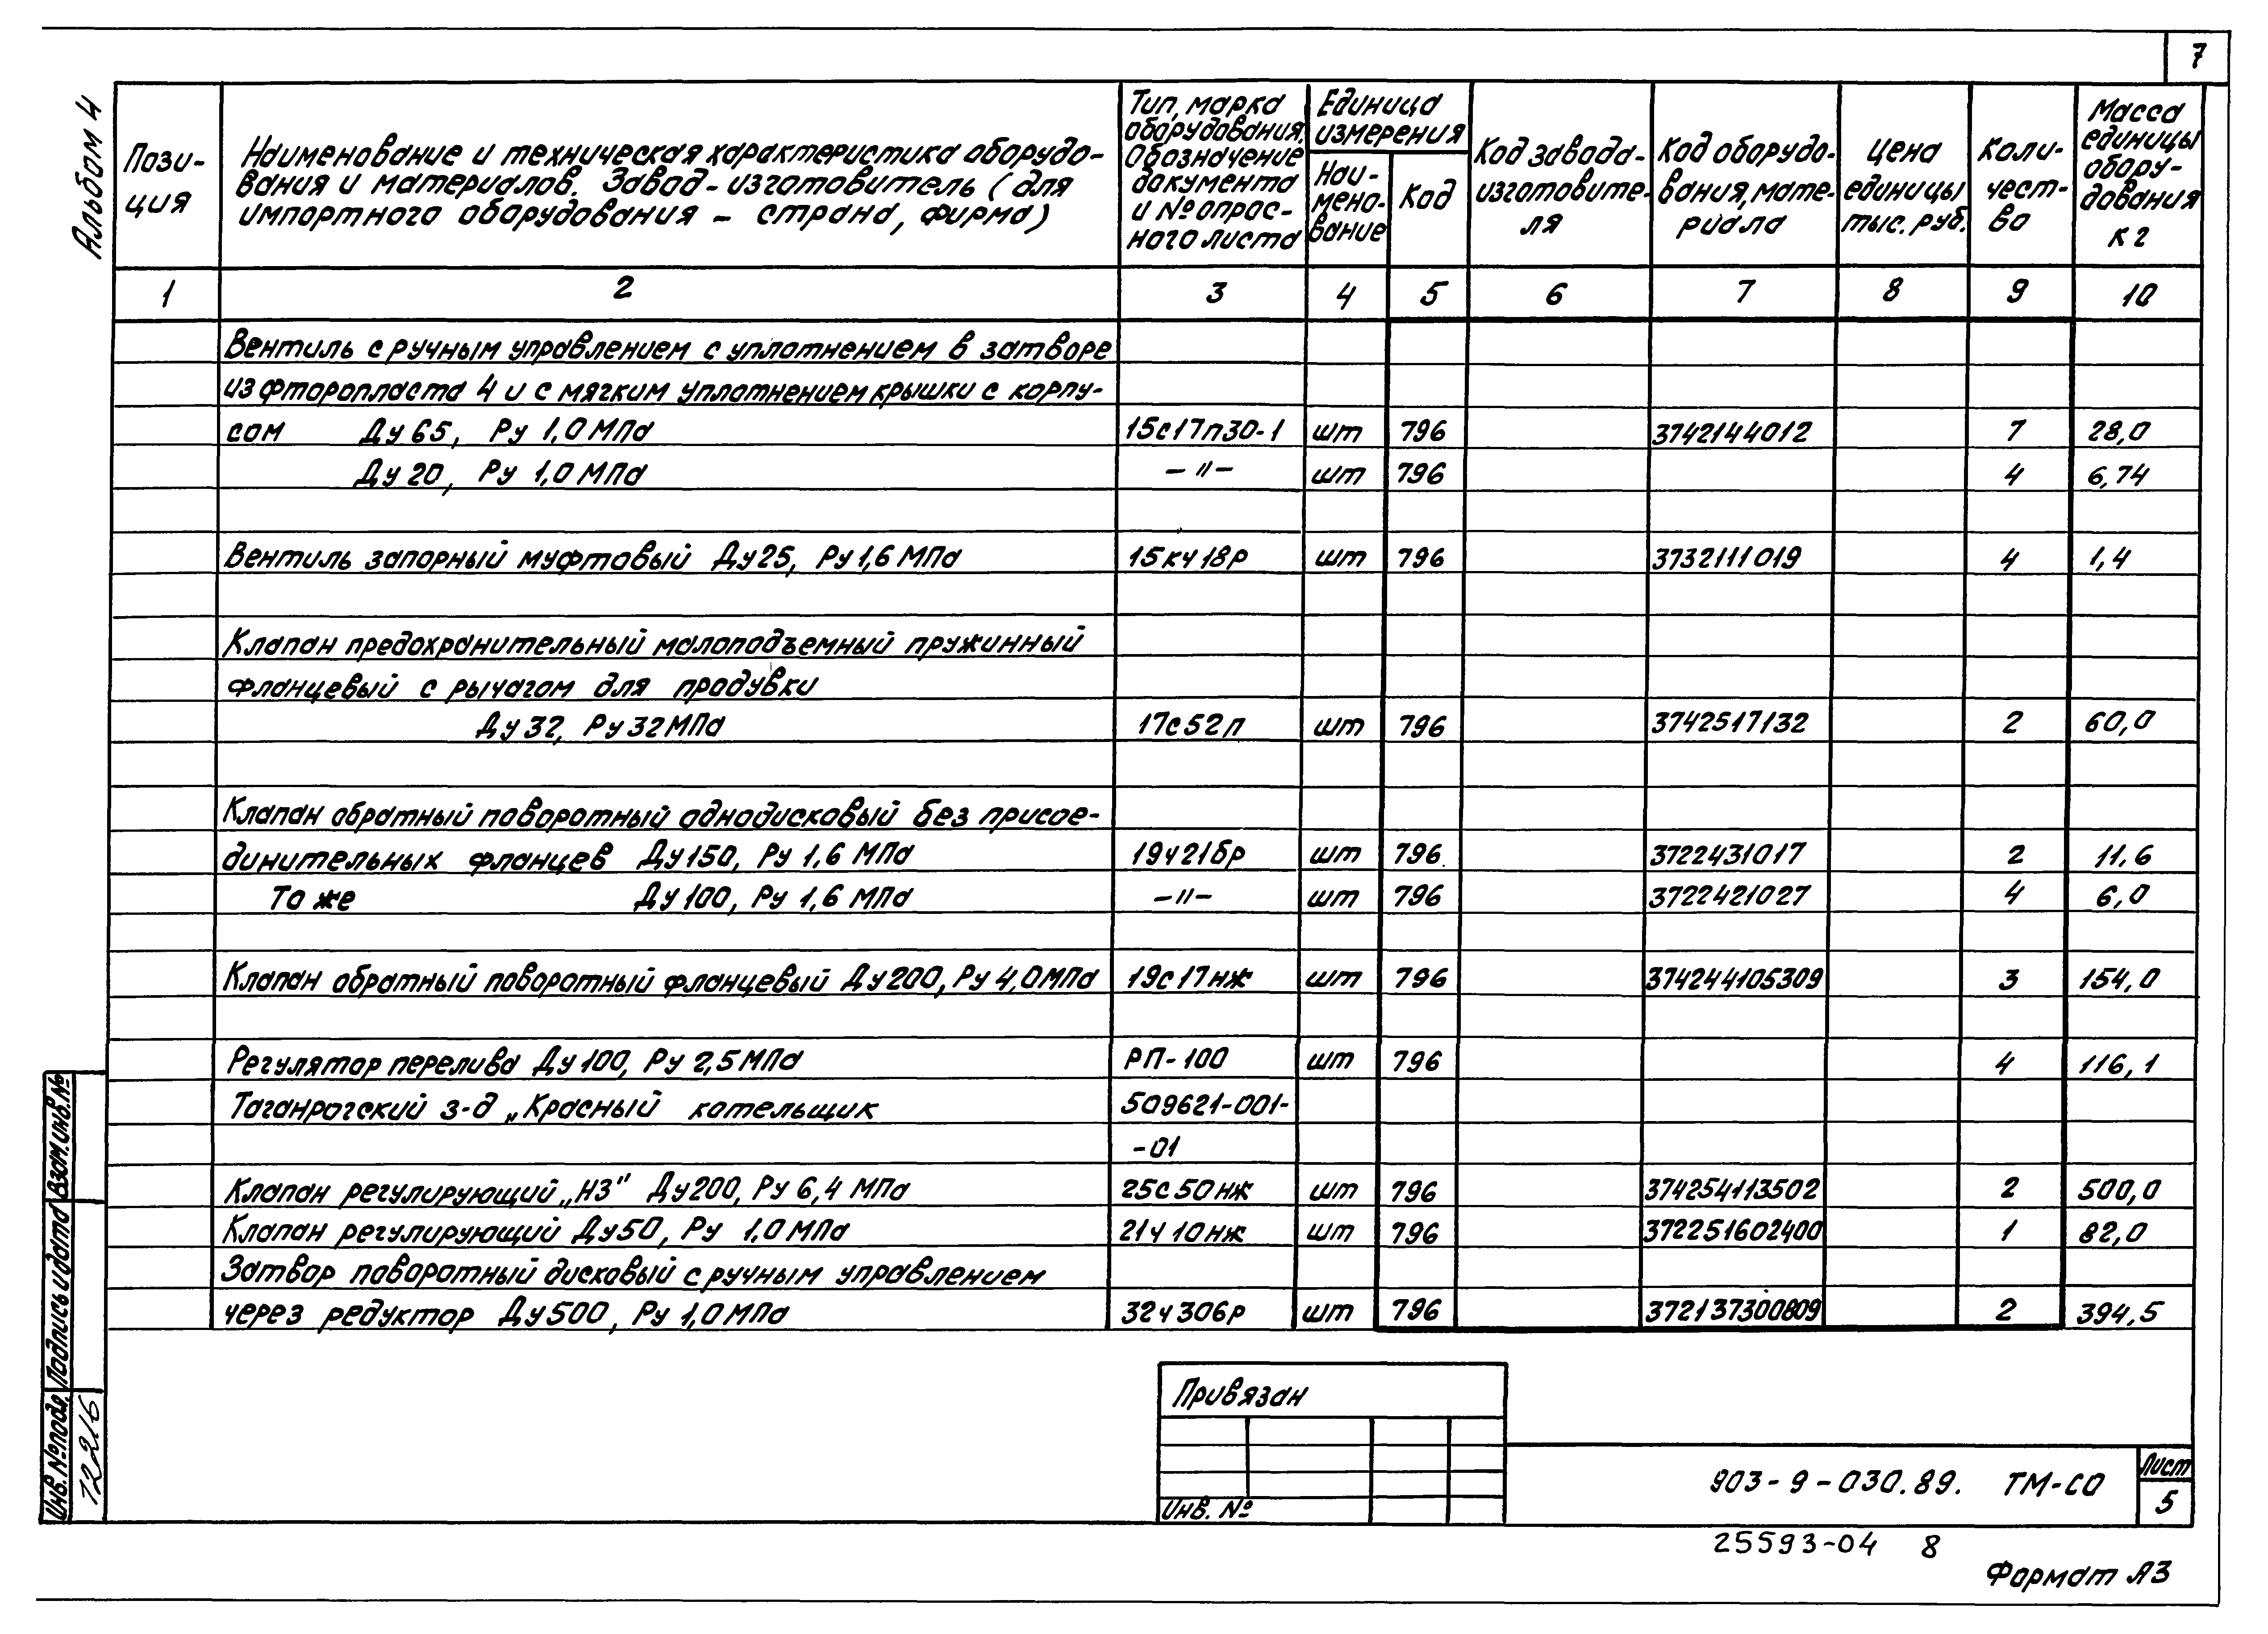 7
Альбом 4
Пози-
ция
Наименование и техническая характеристика оборудо-
вания и материалов. Завод-изготовитель (для
импортного оборудования - страна, фирма)
Тип, марка
оборудования.
Обозначение
документа
и № опрос-
ного листа
Единица
измерения
Наи-
мено-
вание
Код
Код завода-
изготовите-
ля
Код оборудо-
вания, мате-
риала
Цена
единицы
тыс. руб.
Коли-
чест-
во
Масса
единицы
обору-
дования
кг
1 2 3 4 5 6 7 8 9 10
Вентиль с ручным управлением с уплотнением в затворе
из фторопласта 4 и с мягким уплотнением крышки с корпу-
сом Ду 65, Ру 1,0 МПа 15с17п30-1 шт 796 3742144012 7 28,0
Ду 20, Ру 1,0 МПа -"- шт 796 4 6,74
Вентиль запорный муфтовый Ду 25, Ру 1,6 МПа 15кч18р шт 796 3732111019 4 1,4
Клапан предохранительный малоподъемный пружинный
фланцевый с рычагом для продувки
Ду 32, Ру 32 МПа 17с52п шт 796 3742517132 2 60,0
Клапан обратный поворотный однодисковый без присое-
динительных фланцев Ду 150, Ру 1,6 МПа 19ч21бр шт 796 3722431017 2 11,6
То же Ду 100, Ру 1,6 МПа -"- шт 796 3722421027 4 6,0
Клапан обратный поворотный фланцевый Ду 200, Ру 4,0 МПа 19с17нж шт 796 374244105309 3 154,0
Регулятор перелива Ду 100, Ру 2,5 МПа РП-100 шт 796 4 116,1
Таганрогский з-д „Красный котельщик 509621-001-
-01
Клапан регулирующий „НЗ" Ду 200, Ру 6,4 МПа 25с50нж шт 796 374254113502 2 500,0
Клапан регулирующий Ду 50, Ру 1,0 МПа 21ч10нж шт 796 372251602400 1 82,0
Затвор поворотный дисковый с ручным управлением
через редуктор Ду 500, Ру 1,0 МПа 32ч306р шт 796 372137300809 2 394,5
Взам. инв. №
Подпись и дата
Инв. № подл.
12216
Привязан
Инв. №
903-9-030.89. ТМ-СО
Лист
5
25593-04 8
Формат А3